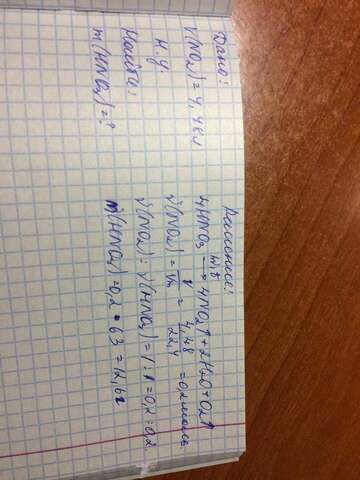 Дано:
V(NO₂) = 4,48л
Н.у.
Найти:
m(HNO₃)=?
Решение:
4HNO₃ → 4NO₂↑ + 2H₂O + O₂↑
ν(NO₂) = V/Vm = 4,48/22,4 = 0,2моль
ν(NO₂) : ν(HNO₃) = 1 : 1 = 0,2 : 0,2
m(HNO₃) = 0,2 * 63 = 12,6г